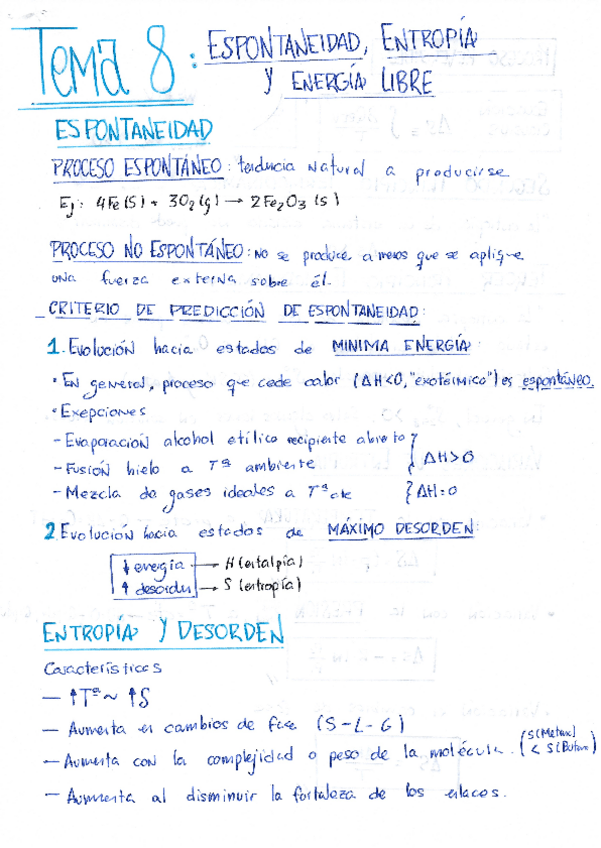 Tema 8: ESPONTANEIDAD, ENTROPÍA
Y ENERGÍA LIBRE
ESPONTANEIDAD
PROCESO ESPONTÁNEO: tendencia natural a producirse
Ej: 4Fe(s) + 3O₂(g) → 2Fe₂O₃(s)
PROCESO NO ESPONTÁNEO: NO se produce a menos que se aplique
una fuerza externa sobre él.
CRITERIO DE PREDICCIÓN DE ESPONTANEIDAD:
1. Evolución hacia estados de MINIMA ENERGÍA
• En general, proceso que cede calor (ΔH<0, "exotérmico") es espontáneo.
• Exepciones
- Evaporación alcohol etílico recipiente abierto
- Fusión hielo a Tª ambiente } ΔH>0
- Mezcla de gases ideales a Tª cte } ΔH=0
2. Evolución hacia estados de MÁXIMO DESORDEN
↓ energía → H (entalpía)
↑ desorden → S (entropía)
ENTROPÍA Y DESORDEN
Características
- ↑Tª ~ ↑S
- Aumenta en cambios de fase (S-L-G)
- Aumenta con la complejidad o peso de la molécula. (S(Metano) < S(Butano))
- Aumenta al disminuir la fortaleza de los enlaces.